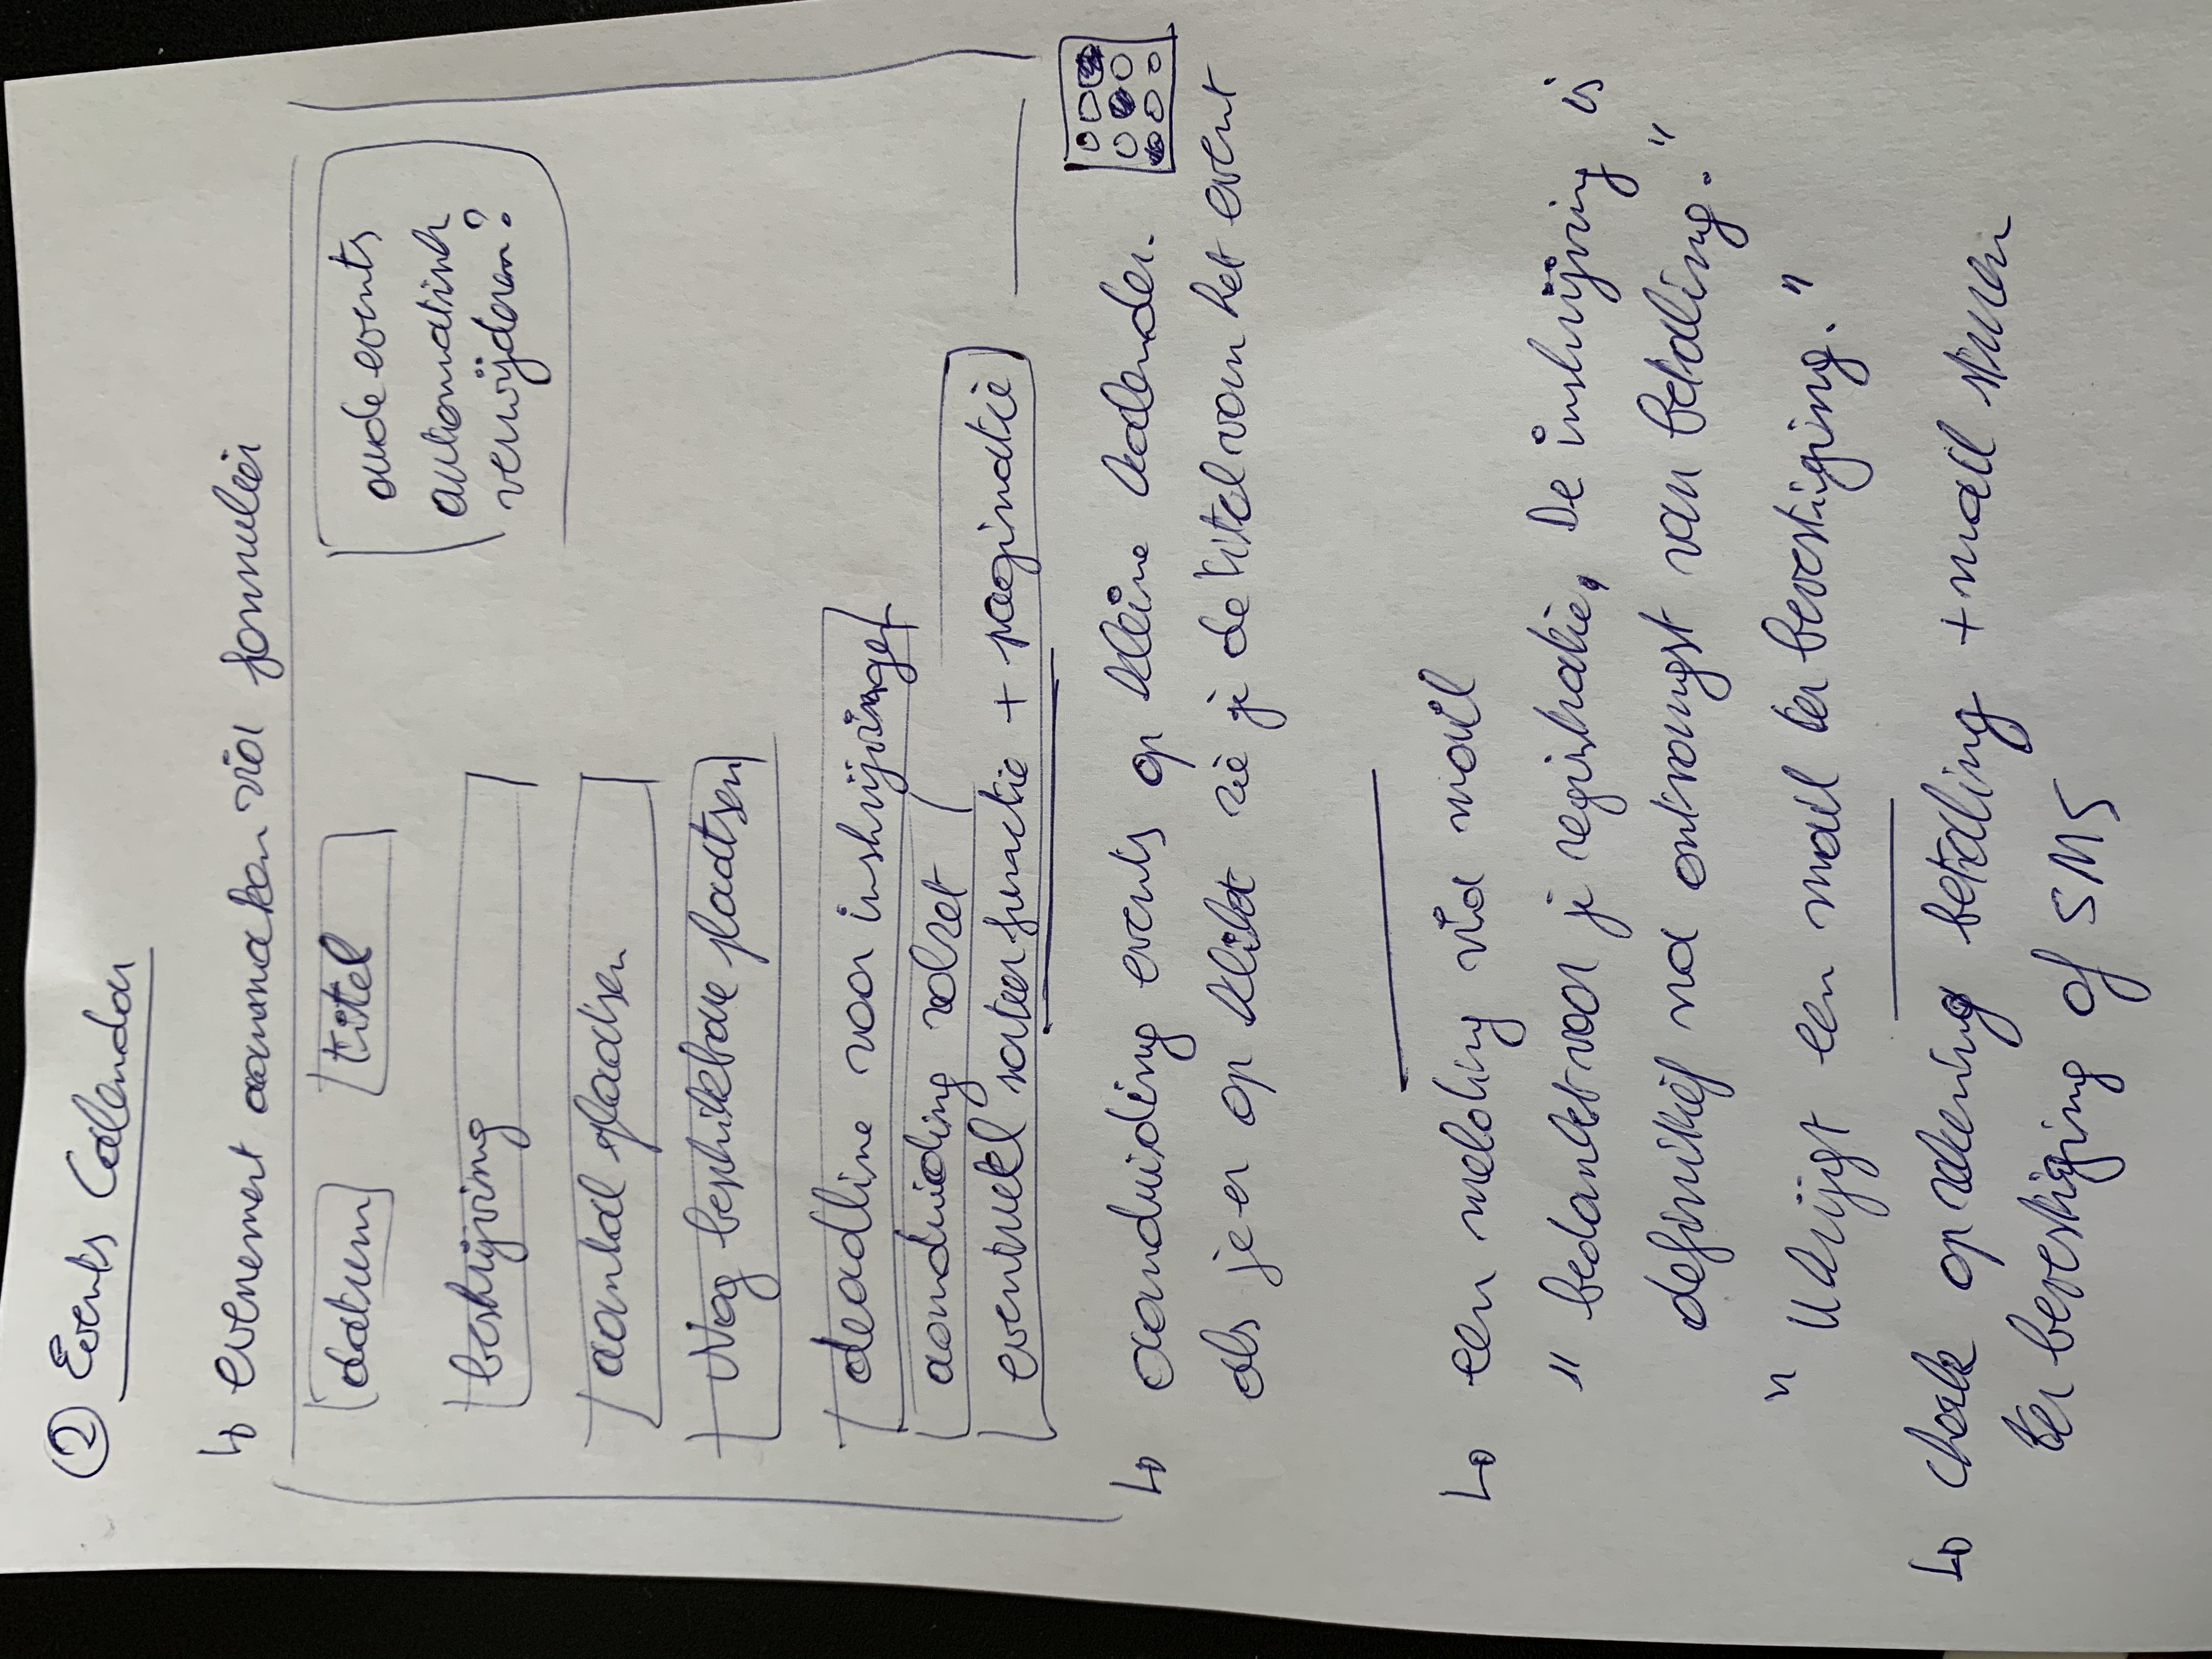 ② Events Calendar
↳ evenement aanmaken via formulier
datum titel
oude events
automatisch
verwijderen?
beschrijving
aantal plaatsen
Nog beschikbare plaatsen
deadline voor inschrijvingen
aanduiding volzet
eventueel sorteerfunctie + paginatie
↳ aanduiding events op kleine kalender.
als je er op klikt zie je de titel van het event
↳ een melding via mail
" bedankt voor je registratie. De inschrijving is
definitief na ontvangst van betaling. "
" U krijgt een mail ter bevestiging. "
↳ check op rekening betaling + mail sturen
ter bevestiging of SMS